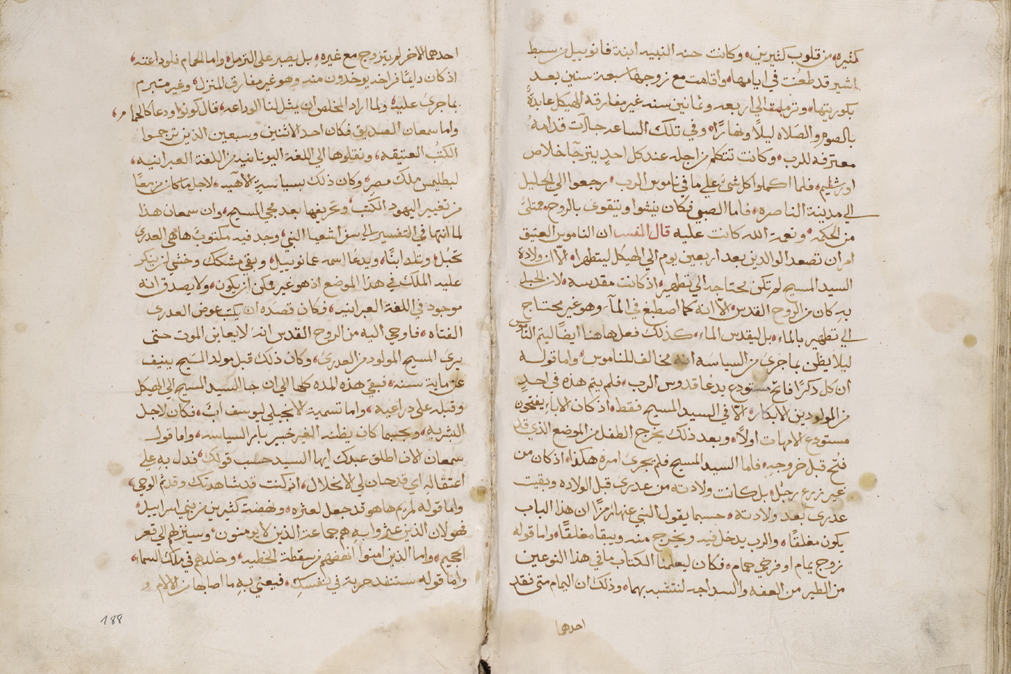 كثيره من قلوب كثيرين، وكانت حنه النبيه ابنة فانوييل من سبط
اشير قد طعنت في ايامها، واقامت مع زوجها سبعة سنين بعد
بكوريتها، وترملت الي اربعه وثمانين سنه غير مفارقه للهيكل عابدةً
بالصوم والصلاه ليلًا ونهارًا، وفي تلك الساعه جاآت قدامه
معترفه للرب، وكانت تتكلم من اجله عند كل احدٍ يترجا خلاص
اورشليم، فلما اكملوا كل شيءٍ علي ما في ناموس الرب، رجعوا الي الجليل
الي مدينة الناصره، فاما الصبي فكان ينشوا ويتقوي بالروح ممتلئ
من الحكمه، ونعمة الله كانت عليه قال المفسر ان الناموس العتيق
امر ان تصعد الوالدين بعد اربعين يوم الي الهيكل ليتطهرا، الا ان ولادة
السيد المسيح لم تكن محتاجه الي تطهير، اذ كانت مقدسه، لان الحبل
به كان من الروح القدس، الا انه كما اصطبغ في الماء، وهو غير محتاج
الي تطهير بالماء، بل ليقدس الماء، كذلك فعل هاهنا ايضًا ليتم الناموس
ليلا يظن بما جري من السياسه انه مخالف للناموس، واما قوله
ان كل ذكرًا فاتح مستودع يدعا قدوس الرب، فلم يتم هذه في احدٍ
من المولودين الابكار، الا في السيد المسيح فقط، اذ كان الاباء يفتحون
مستودع الامهات اولًا، وبعد ذلك يخرج الطفل من الموضع الذي قد
فتح قبل خروجه، فاما السيد المسيح فلم يجري امره هكذا، اذ كان من
غير زرع رجل، بل كانت ولادته من عدري قبل الولاده وبقيت
عدري بعد ولادته، حسبما يقول النبي عنها رمزًا ان هذا الباب
يكون مغلقًا، والرب يدخل فيه ويخرج منه ويبقا مغلقًا، واما قوله
زوج يمام او فرخي حمام، فكان ليعلمنا الكتاب ما في هذا النوعين
من الطير من العفه والسداجه لنتشبه بهما، وذلك ان اليمام متي فقد
احدهما
احدهما الاخر لم يتزوج مع غيره، بل يصبر علي الترمل، واما الحمام فلوداعته
اذ كان دايمًا فراخه يوخدون منه وهو غير مفارق المنزل، وغير متبرم
بما جري عليه، ولما اراد المخلص ان يمثل لنا الوداعه، قال كونوا ودعا كالحمام،
واما سمعان الصديق فكان احد الاثنين وسبعين الذين ترجموا
الكتب العتيقه، ونقلوها الي اللغة اليونانيه من اللغة العبرانيه،
لبطليمس ملك مصر، وكان ذلك بسياسةٍ الاهيه، لاجل ما كان مزمعًا
من تغيير اليهود الكتب وتحريفها بعد مجي المسيح، وان سمعان هذا
لما انتها في التفسير الي سفر اشعيا النبي، وجد فيه مكتوب ها هي العدري
تحبل، وتلد ابنًا، ويدعا اسمه عمانوييل، وبقي مشكك وخشي ان ينكر
عليه الملك في هذا الموضع اذ هو غير ممكن ان يكون، ولا يصدق انه
موجود في اللغة العبرانيه، فكان قصده ان يكتب عوض العدري
الفتاه، فاوحي اليه من الروح القدس انه لا يعاين الموت حتي
يري المسيح المولود من العدري، وكان ذلك قبل مولد المسيح بنيف
عن ماية سنه، فبقي هذه المده كلها الي ان جا السيد المسيح الي الهيكل
وقبله علي دراعيه، واما تسمية الانجيلي ليوسف ابٌ، فكان لاجل
الشريه، وبحسبما كان يظنه الغير خبير بامر السياسه، واما قول
سمعان الان اطلق عبدك ايها السيد حسب قولك، فدل به علي
اعتقاله اي قد حان لي الانحلال، اذ كنت قد شاهدتك وقد تم الوحي،
واما قوله لمريم هاهو قد جعل لعثره، ونهضة كثيرين من بني اسراييل،
فهولاي الذين عثروا به، هم جماعة الذين لا يومنون، وسينزلهم الي قعر
الجحيم، واما الذين امنوا انهضهم من سقطة الخطيه، وادخلهم في ملك السما،
واما قوله ستنفد حربة في نفسكِ، فيعني به ما اصابها من الالام و
188